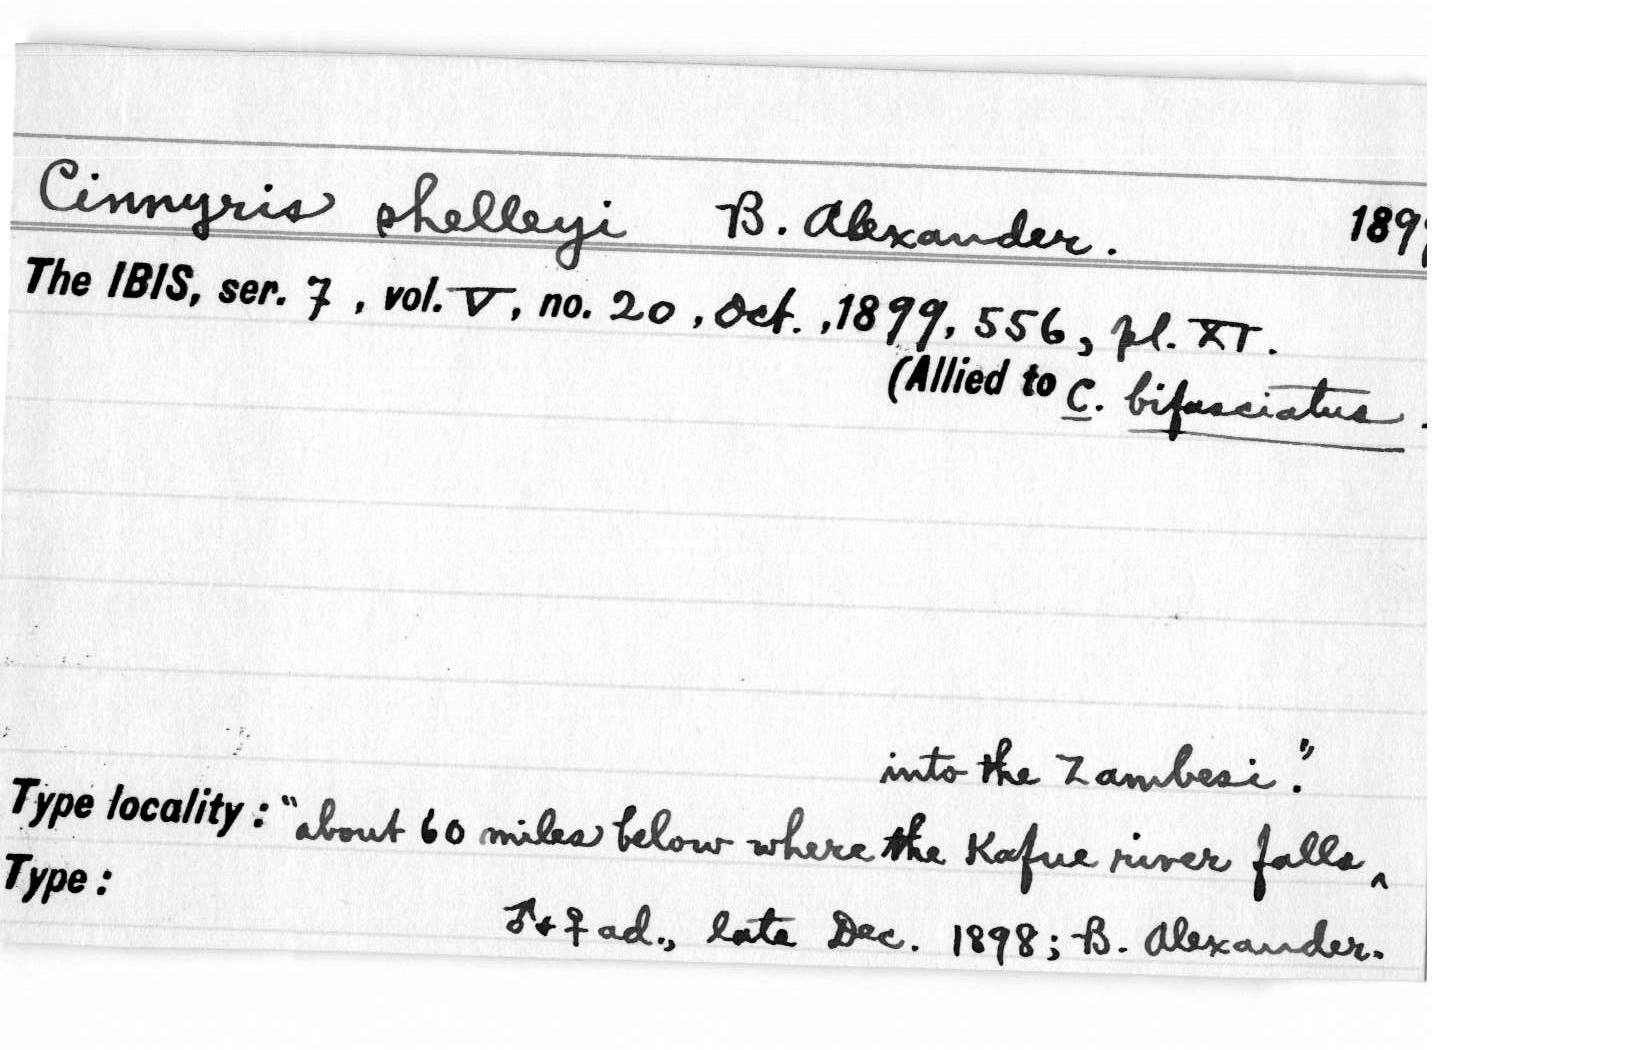 Cinnyris shelleyi B. Alexander. 1899
The IBIS, ser. 7, vol. V, no. 20, Oct., 1899, 556, pl. XI.
(Allied to C. bifasciatus.
into the Zambesi."
Type locality: "about 60 miles below where the Kafue river falls ^
Type:
♂ + ♀ ad., late Dec. 1898; B. Alexander.